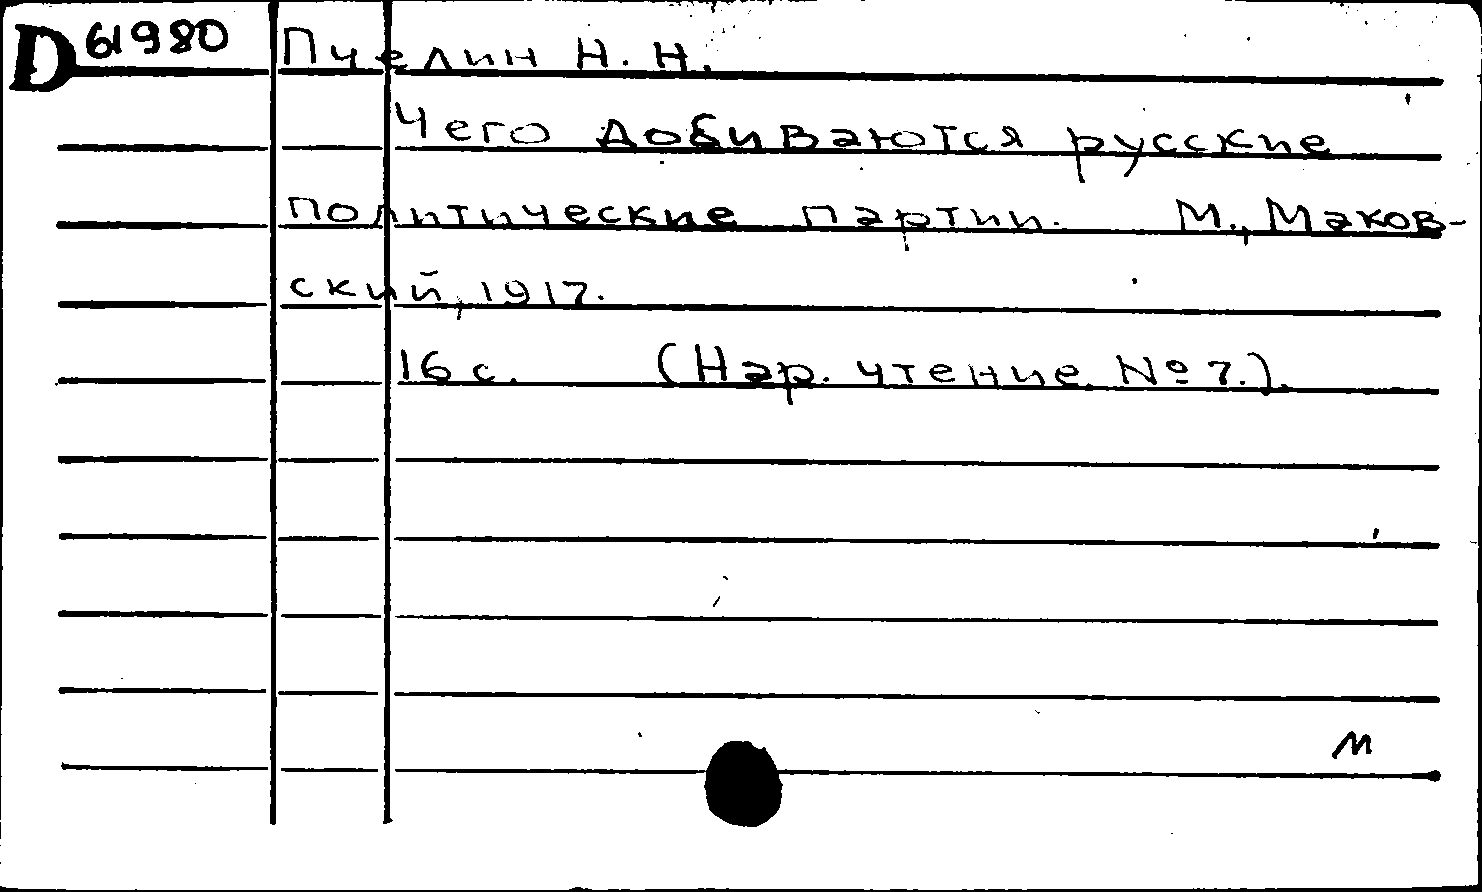 D 61980 Пчелин Н. Н.
Чего добиваются русские
политические партии. М., Маков-
ский, 1917.
16 с. (Нар. чтение. № 7.).
м